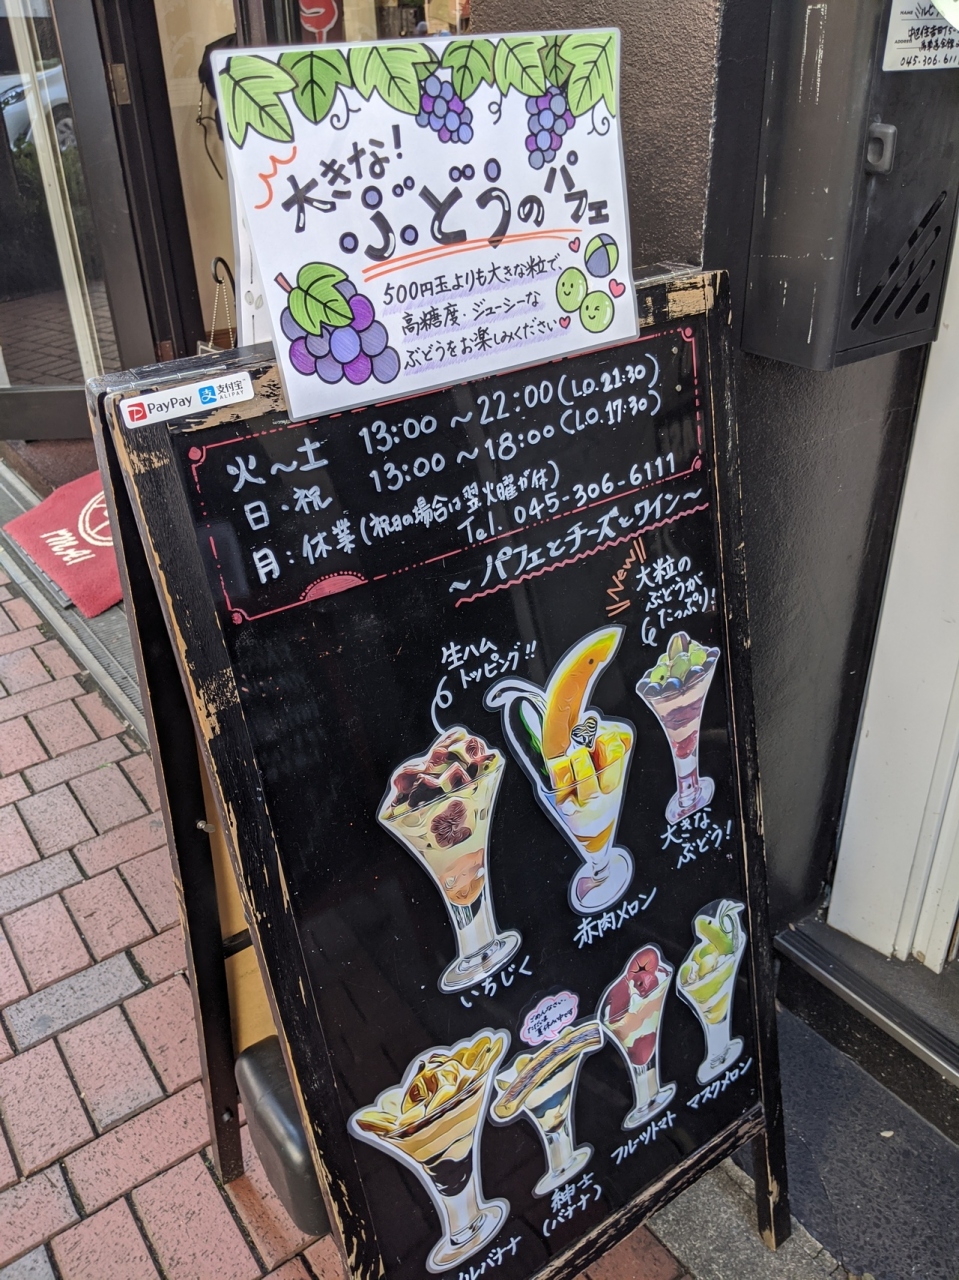 大きな!
ぶどうのパフェ
500円玉よりも大きな粒で、
高糖度・ジューシーな
ぶどうをお楽しみください
PayPay 支付宝 ALIPAY
火～土 13:00～22:00(L.O.21:30)
日・祝 13:00～18:00(L.O.17:30)
月:休業(祝日の場合は翌火曜が休)
Tel. 045-306-6111
～パフェとチーズとワイン～
New
大粒の
ぶどうが
たっぷり!
生ハム
トッピング!!
大きな
ぶどう!
赤肉メロン
いちじく
ごめんなさい
マスクメロン
フルーツトマト
紳士
(バナナ)
バナナ
NAME
ADDRESS
045-306-611